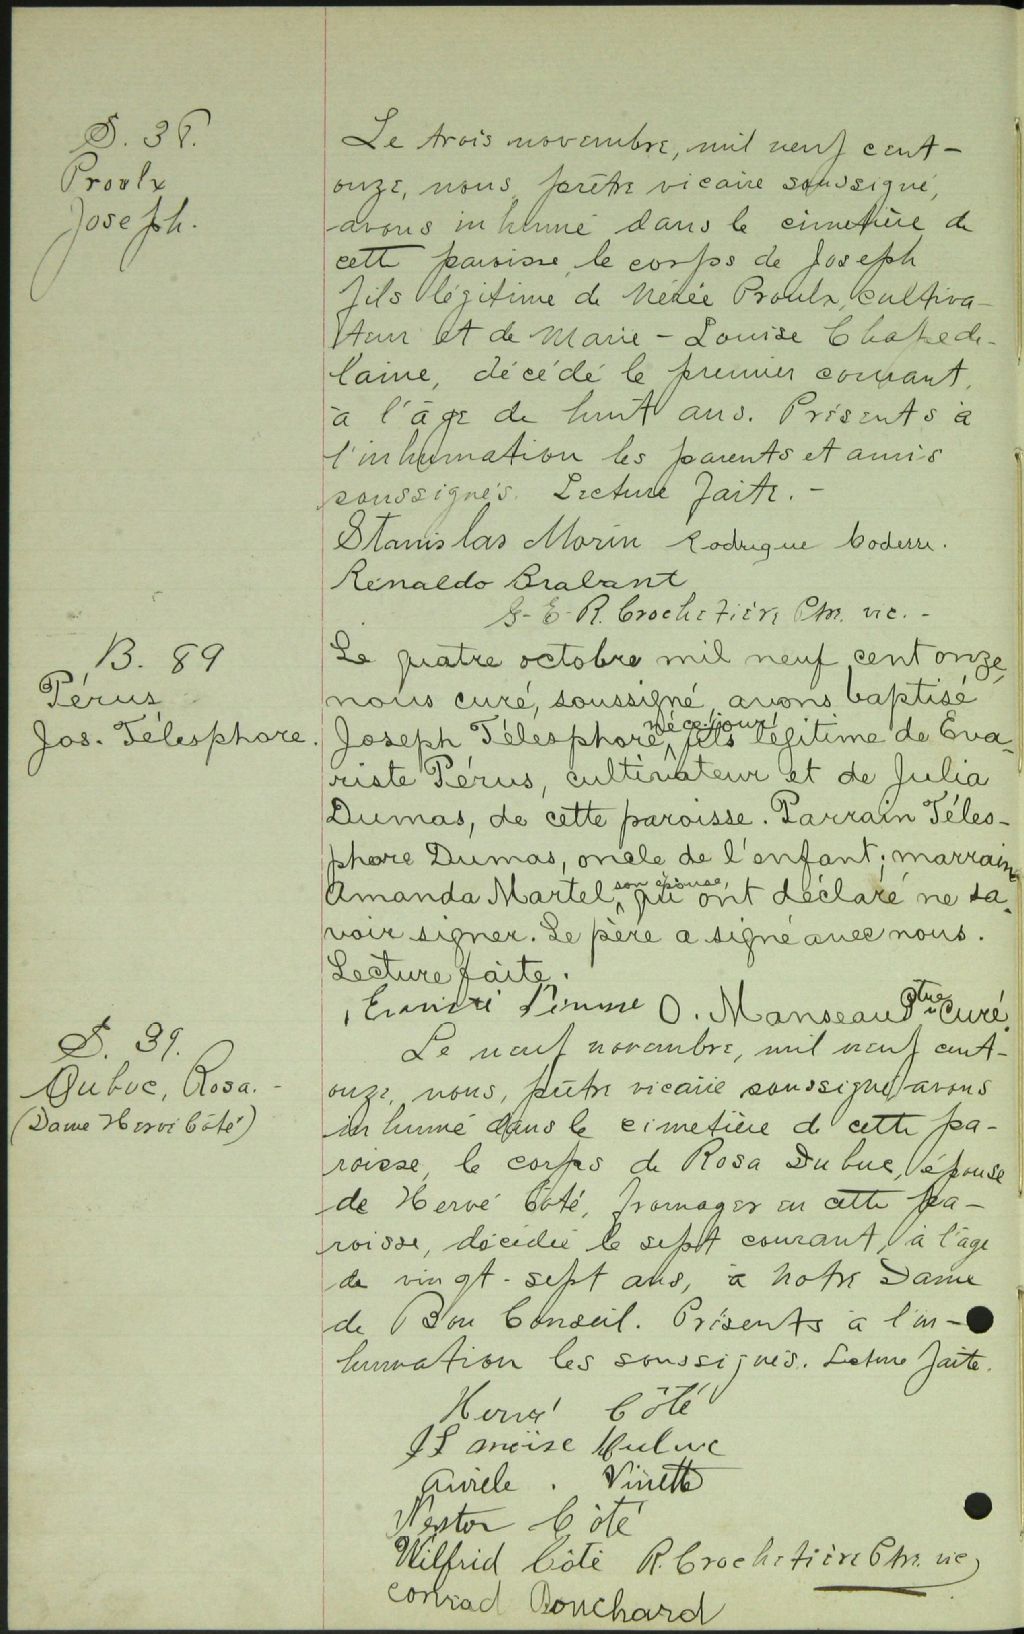 S. 38.
Proulx
Joseph.
Le trois novembre, mil neuf cent-
onze, nous, prêtre vicaire soussigné,
avons inhumé dans le cimetière de
cette paroisse, le corps de Joseph
fils légitime de Nérée Proulx, cultiva-
teur et de Marie-Louise Chapde-
laine, décédé le premier courant,
à l'âge de huit ans. Présents à
l'inhumation les parents et amis
soussignés. Lecture faite. -
Stanislas Morin Rodrigue Coderre.
Rénaldo Brabant
G-E-R. Crochetière Ptre. vic. -
B. 89
Pérus
Jos. Télesphore.
Le quatre octobre mil neuf cent onze,
nous curé, soussigné, avons baptisé
Joseph Télesphore, né ce jour, fils légitime de Eva-
riste Pérus, cultivateur et de Julia
Dumas, de cette paroisse. Parrain Téles-
phore Dumas, oncle de l'enfant; marraine
Amanda Martel, son épouse, qui ont déclaré ne sa-
voir signer. Le père a signé avec nous.
Lecture faite.
O. Manseau Ptre Curé.
S. 39.
Dubuc, Rosa. -
(Dame Hervé Côté)
Le neuf novembre, mil neuf cent-
onze, nous, prêtre vicaire soussigné, avons
inhumé dans le cimetière de cette pa-
roisse, le corps de Rosa Dubuc, épouse
de Hervé Côté, fromager en cette pa-
roisse, décédée le sept courant, à l'âge
de vingt-sept ans, à Notre Dame
de Bon Conseil. Présents à l'in-
humation les soussignés. Lecture faite.
Hervé Côté
Moïse Dubuc
Aurèle. Vinette
Nestor Côté
Wilfrid Côté R. Crochetière Ptre. vic
Conrad Bouchard